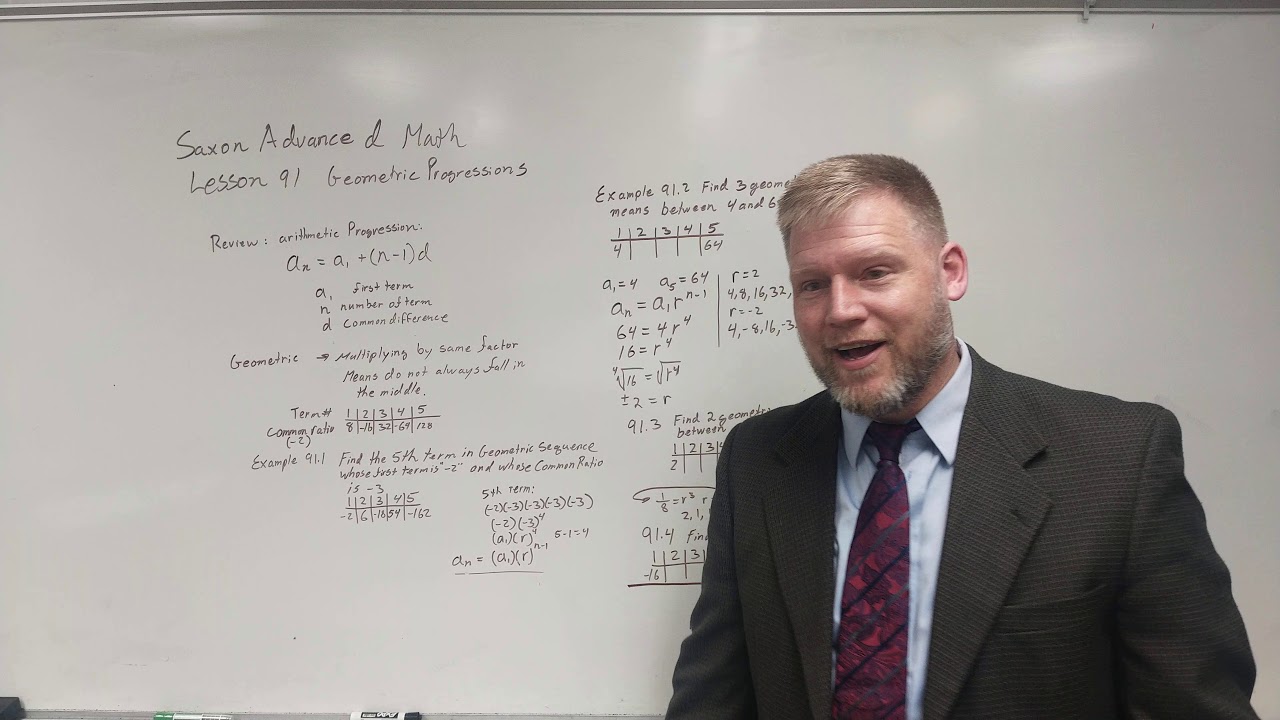 Saxon Advanced Math
Lesson 91 Geometric Progressions
Review: arithmetic Progression:
aₙ = a₁ + (n-1)d
a₁ first term
n number of term
d common difference
Geometric → Multiplying by same factor
Means do not always fall in
the middle.
Term# 1 2 3 4 5
Common ratio 8 -16 32 -64 128
(-2)
Example 91.1 Find the 5th term in Geometric Sequence
whose first term is "-2" and whose Common Ratio
is -3
1 2 3 4 5
-2 6 -18 54 -162
5th Term:
(-2)(-3)(-3)(-3)(-3)
(-2)(-3)⁴
(a₁)(r)⁴ 5-1=4
aₙ = (a₁)(r)ⁿ⁻¹
Example 91.2 Find 3 geome
means between 4 and 6
1 2 3 4 5
4 64
a₁=4 a₅=64
aₙ = a₁rⁿ⁻¹
64 = 4r⁴
16 = r⁴
⁴√16 = ⁴√r⁴
±2 = r
r=2
4,8,16,32,
r=-2
4,-8,16,-3
91.3 Find 2 geometri
between
1 2 3 4
2
1/8 = r³ r
2, 1,
91.4 Find
1 2 3
-16